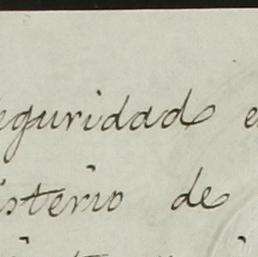 eguridad e
isterio de